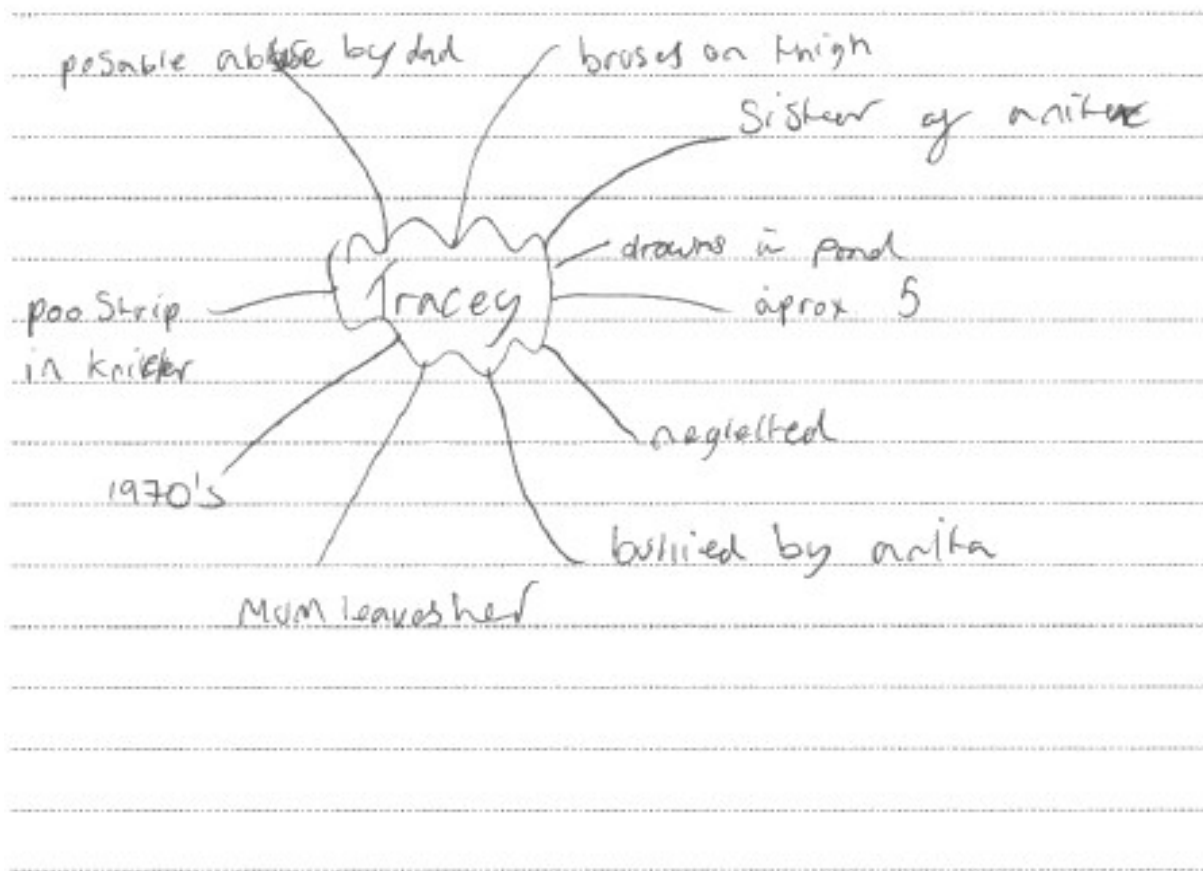 posable abuse by dad
bruses on thigh
Sister of anita
drowns in pond
Tracey
aprox 5
poo Strip
in knicker
neglelted
1970's
bullied by anita
Mum leaves her